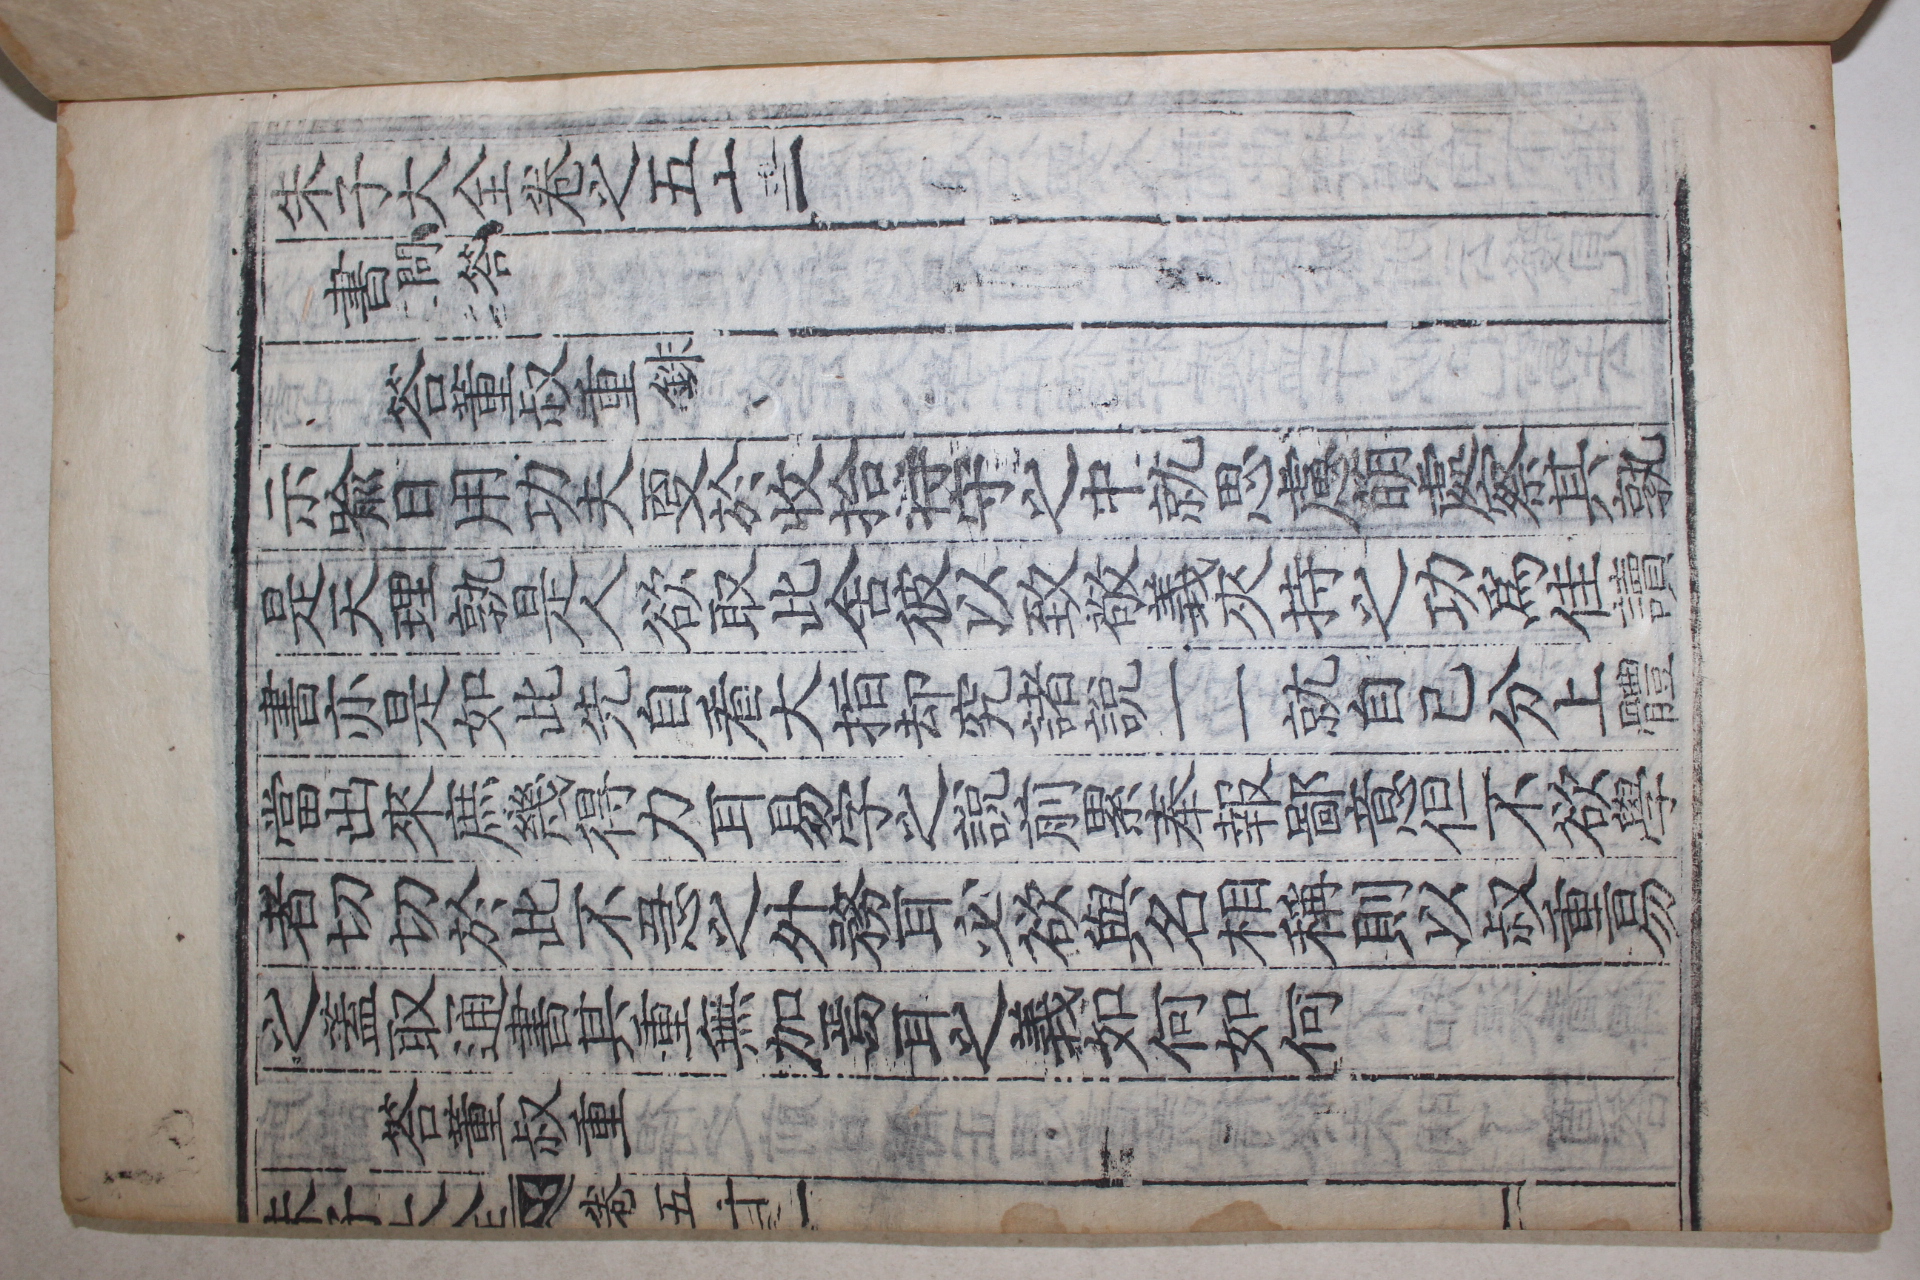 朱子大全卷之五十一
書問答
答董叔重銖
示喻日用功夫更於收拾持守之中就思慮萌處察其孰
是天理孰是人欲取此舍彼以致敬義夾持之功爲佳讀
書亦是如此先自看大指却究諸說一一就自己分上體
當出來庶幾得力耳易字之說前累奉報鄙意但不欲學
者切切於此不急之外務耳必欲與名相稱則以叔重易
之蓋取通書其重無加焉耳之義如何如何
答董叔重
朱子大全 卷五十一 一